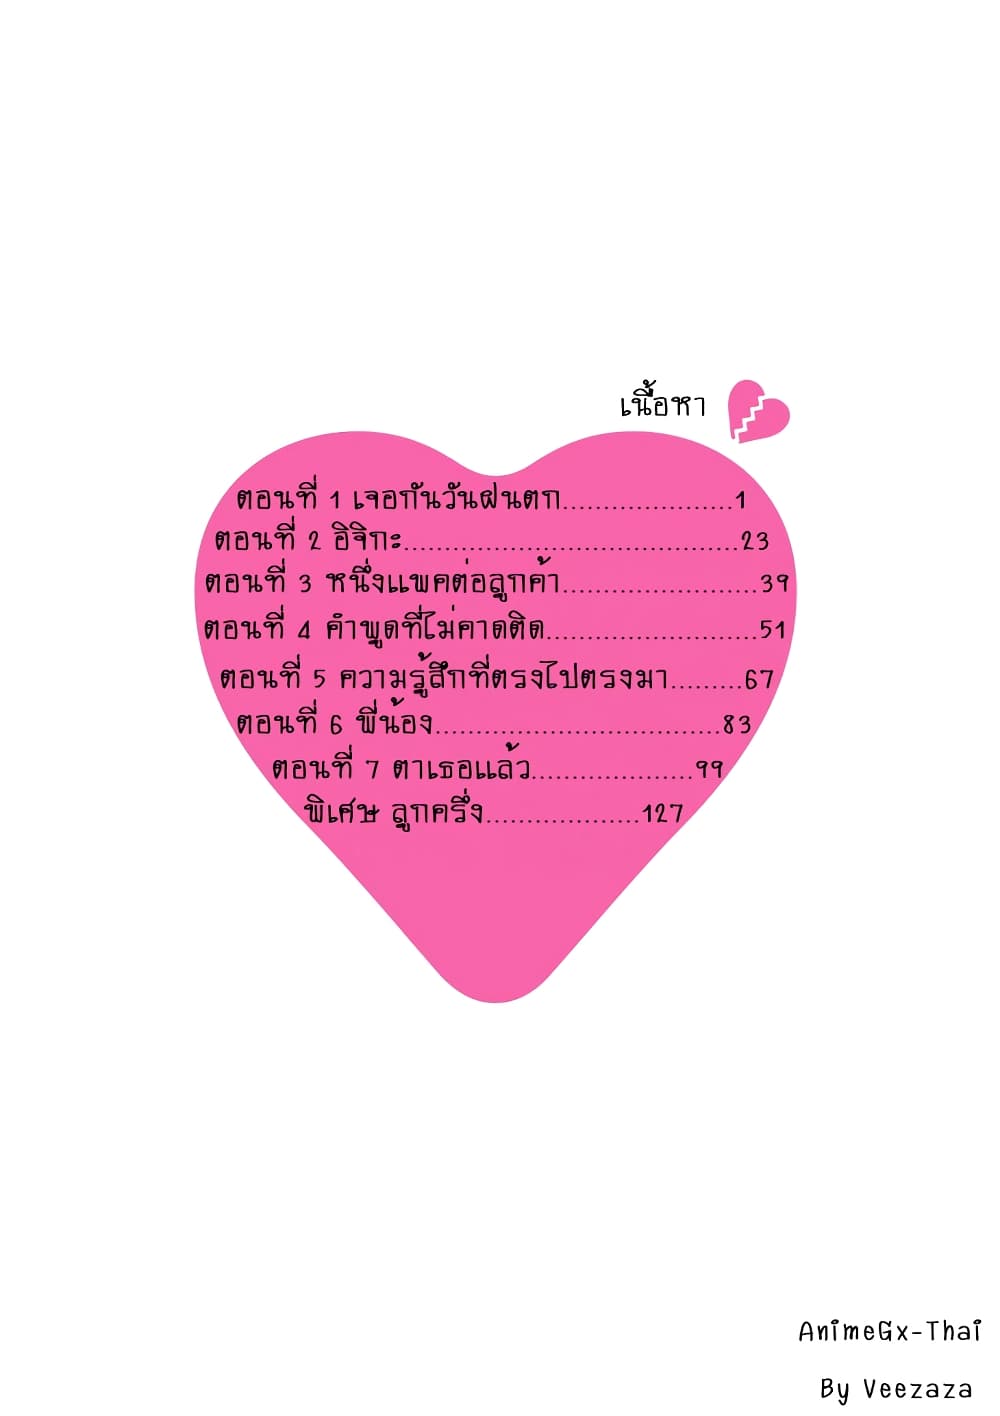 เนื้อหา
ตอนที่ 1 เจอกันวันฝนตก.....................1
ตอนที่ 2 อิจิกะ.........................................23
ตอนที่ 3 หนึ่งแพคต่อลูกค้า........................39
ตอนที่ 4 คำพูดที่ไม่คาดติด..........................51
ตอนที่ 5 ความรู้สึกที่ตรงไปตรงมา.........67
ตอนที่ 6 พี่น้อง...................................83
ตอนที่ 7 ตาเธอแล้ว....................99
พิเศษ ลูกครึ่ง...................127
AnimeGx-Thai
By Veezaza